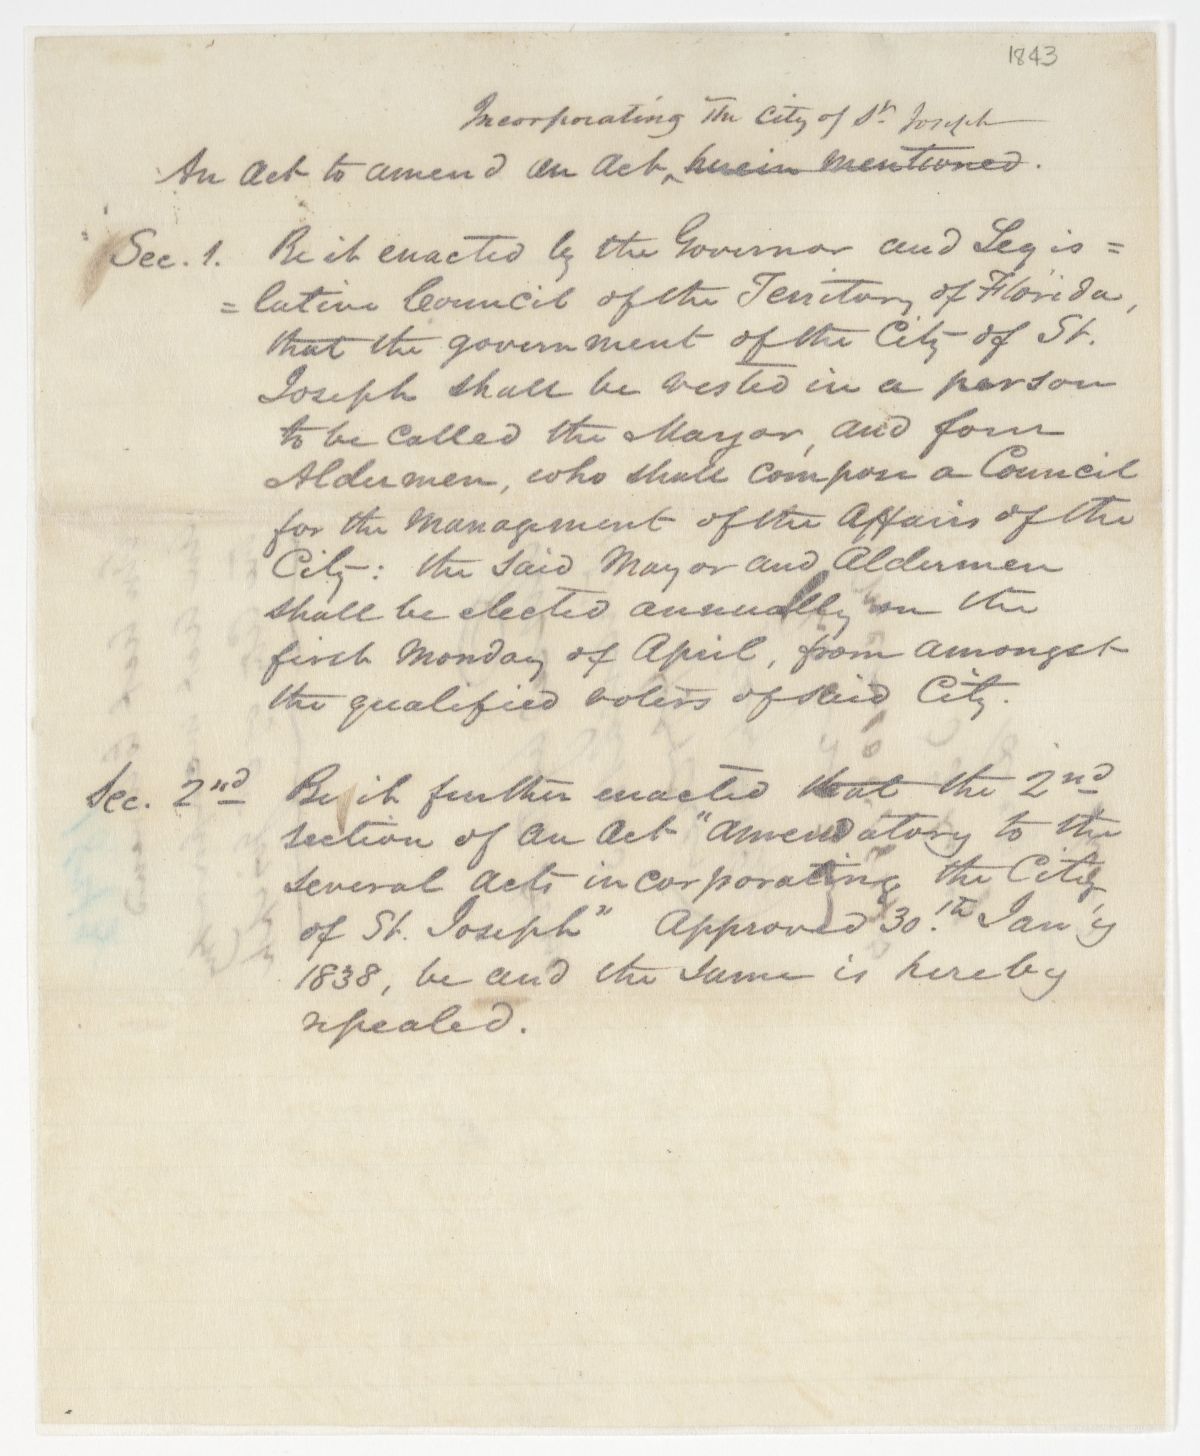 1843
Incorporating The City of St. Joseph
An Act to amend an Act ‸ herein mentioned.
Sec. 1. Be it enacted by the Governor and Legis=
=lative Council of the Territory of Florida,
that the government of the City of St.
Joseph shall be vested in a person
to be called the Mayor, and four
Aldermen, who shall compose a Council
for the management of the Affairs of the
City: the said Mayor and Aldermen
shall be elected annually on the
first Monday of April, from amongst
the qualified voters of said City.
Sec. 2nd Be it further enacted that the 2nd
section of an Act "amendatory to the
several acts incorporating the City
of St. Joseph" Approved 30.th Jan'y
1838, be and the same is hereby
repealed.